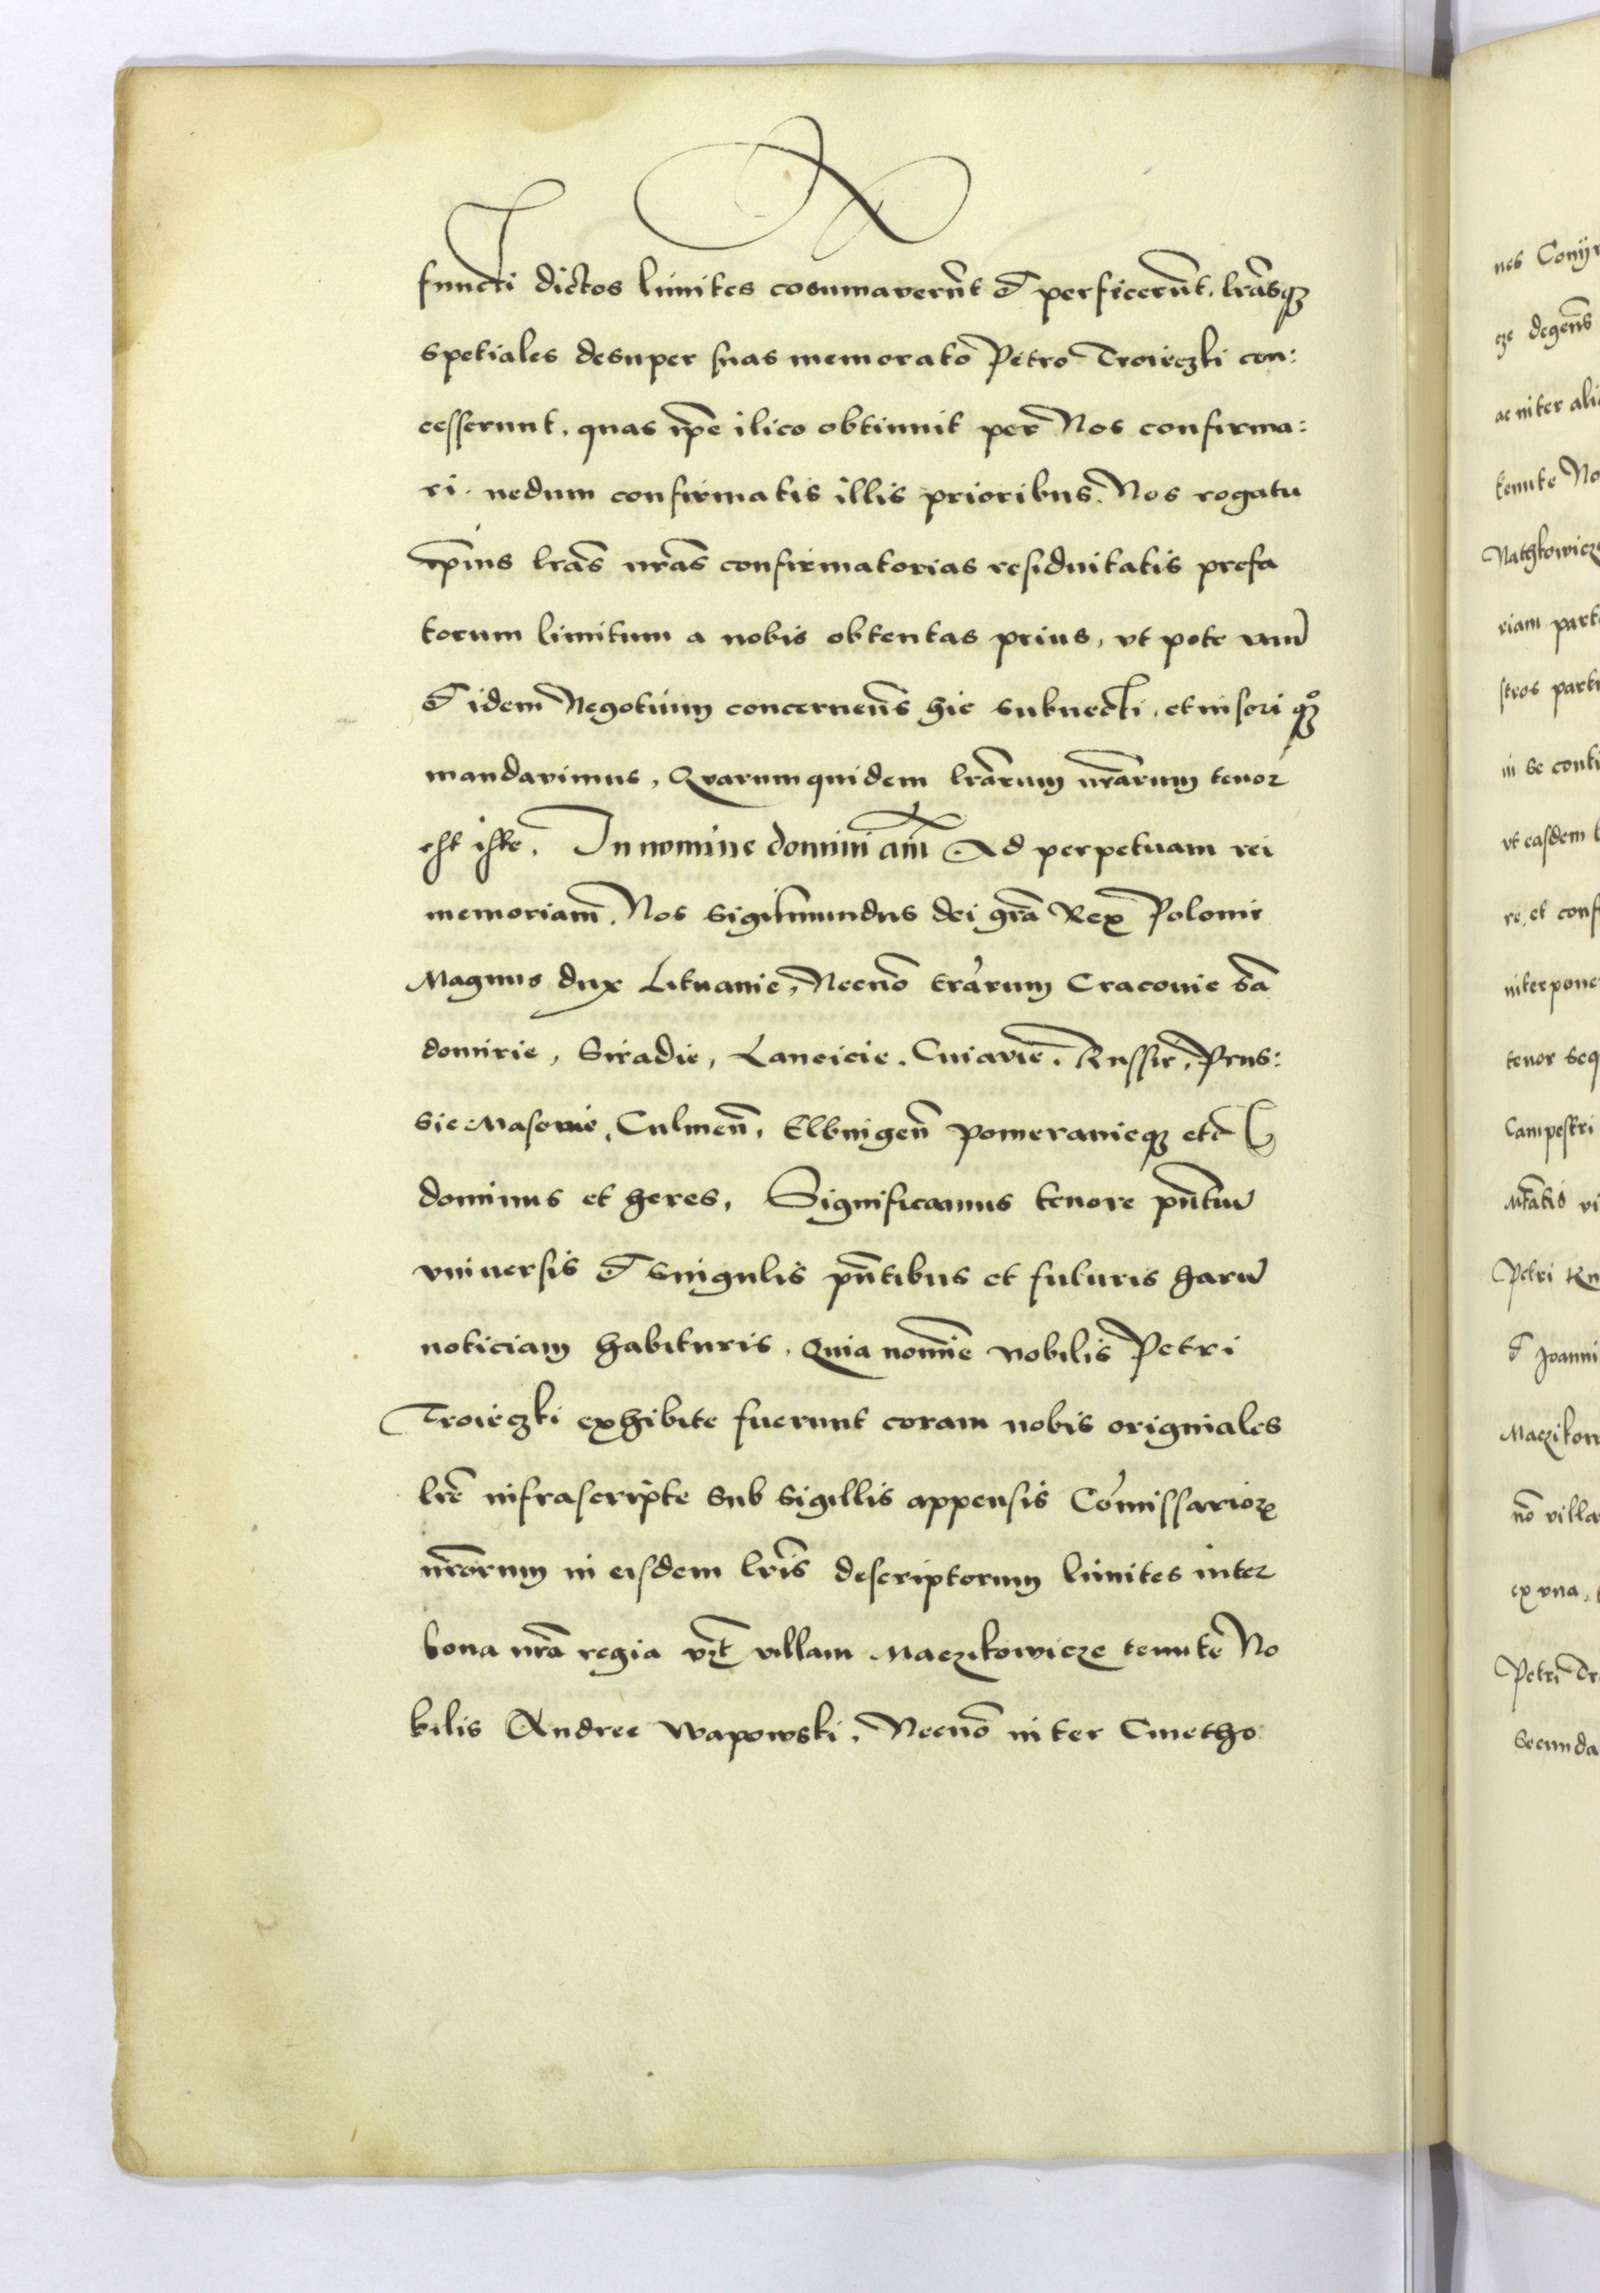 functi dictos limites cosumaverūt et perficerūt. lrāsq3
spetiales desuper suas memorato Petro Troieczki con:
cesserunt. quas ip̄e ilico obtinuit per Nos confirma:
ri. nedum confirmatis illis prioribus. Nos rogatu
ip̄ius lrās nr̄as confirmatorias residuitatis prefa
torum limitum a nobis obtentas prius, vt pote vnū
et idem Negotium concernen̄s hic subnecti, et inseri
mandavimus, Qvarum quidem lrārum nr̄arum tenor
est iste. In nomine domini am̄ Ad perpetuam rei
memoriam. Nos Sigismundus dei grā Rex Polonie
Magnus dux Lituanie, Necnō trārum Cracovie Sā
domirie, Siradie, Lancicie. Cuiavie. Russie, Prus:
sie Masovie, Culmen̄, Elbingen̄ Pomeranieq3 etc
dominus et heres. Significamus tenore pn̄tiū
vniversis et singulis pn̄tibus et futuris harū
noticiam habituris, Quia nomīe Nobilis Petri
Troieczki exhibite fuerunt coram nobis originiales
lrē infrascripte Sub Sigillis appensis Cōmissarioꝝ
nr̄orum in eisdem lrīs descriptorum limites inter
bona nr̄a regia vꝫt villam Maczikowicze tenute No
bilis Andree Wapowski, Necnō inter Cmetho
nes
eze degen̄s
ac inter
tenute
riam
stros
in se
vt easdem
re, et
interpone
tenor
Campestri
vi
Petri
et Joanni
nō villa
ex vna,
Petri
Secunda